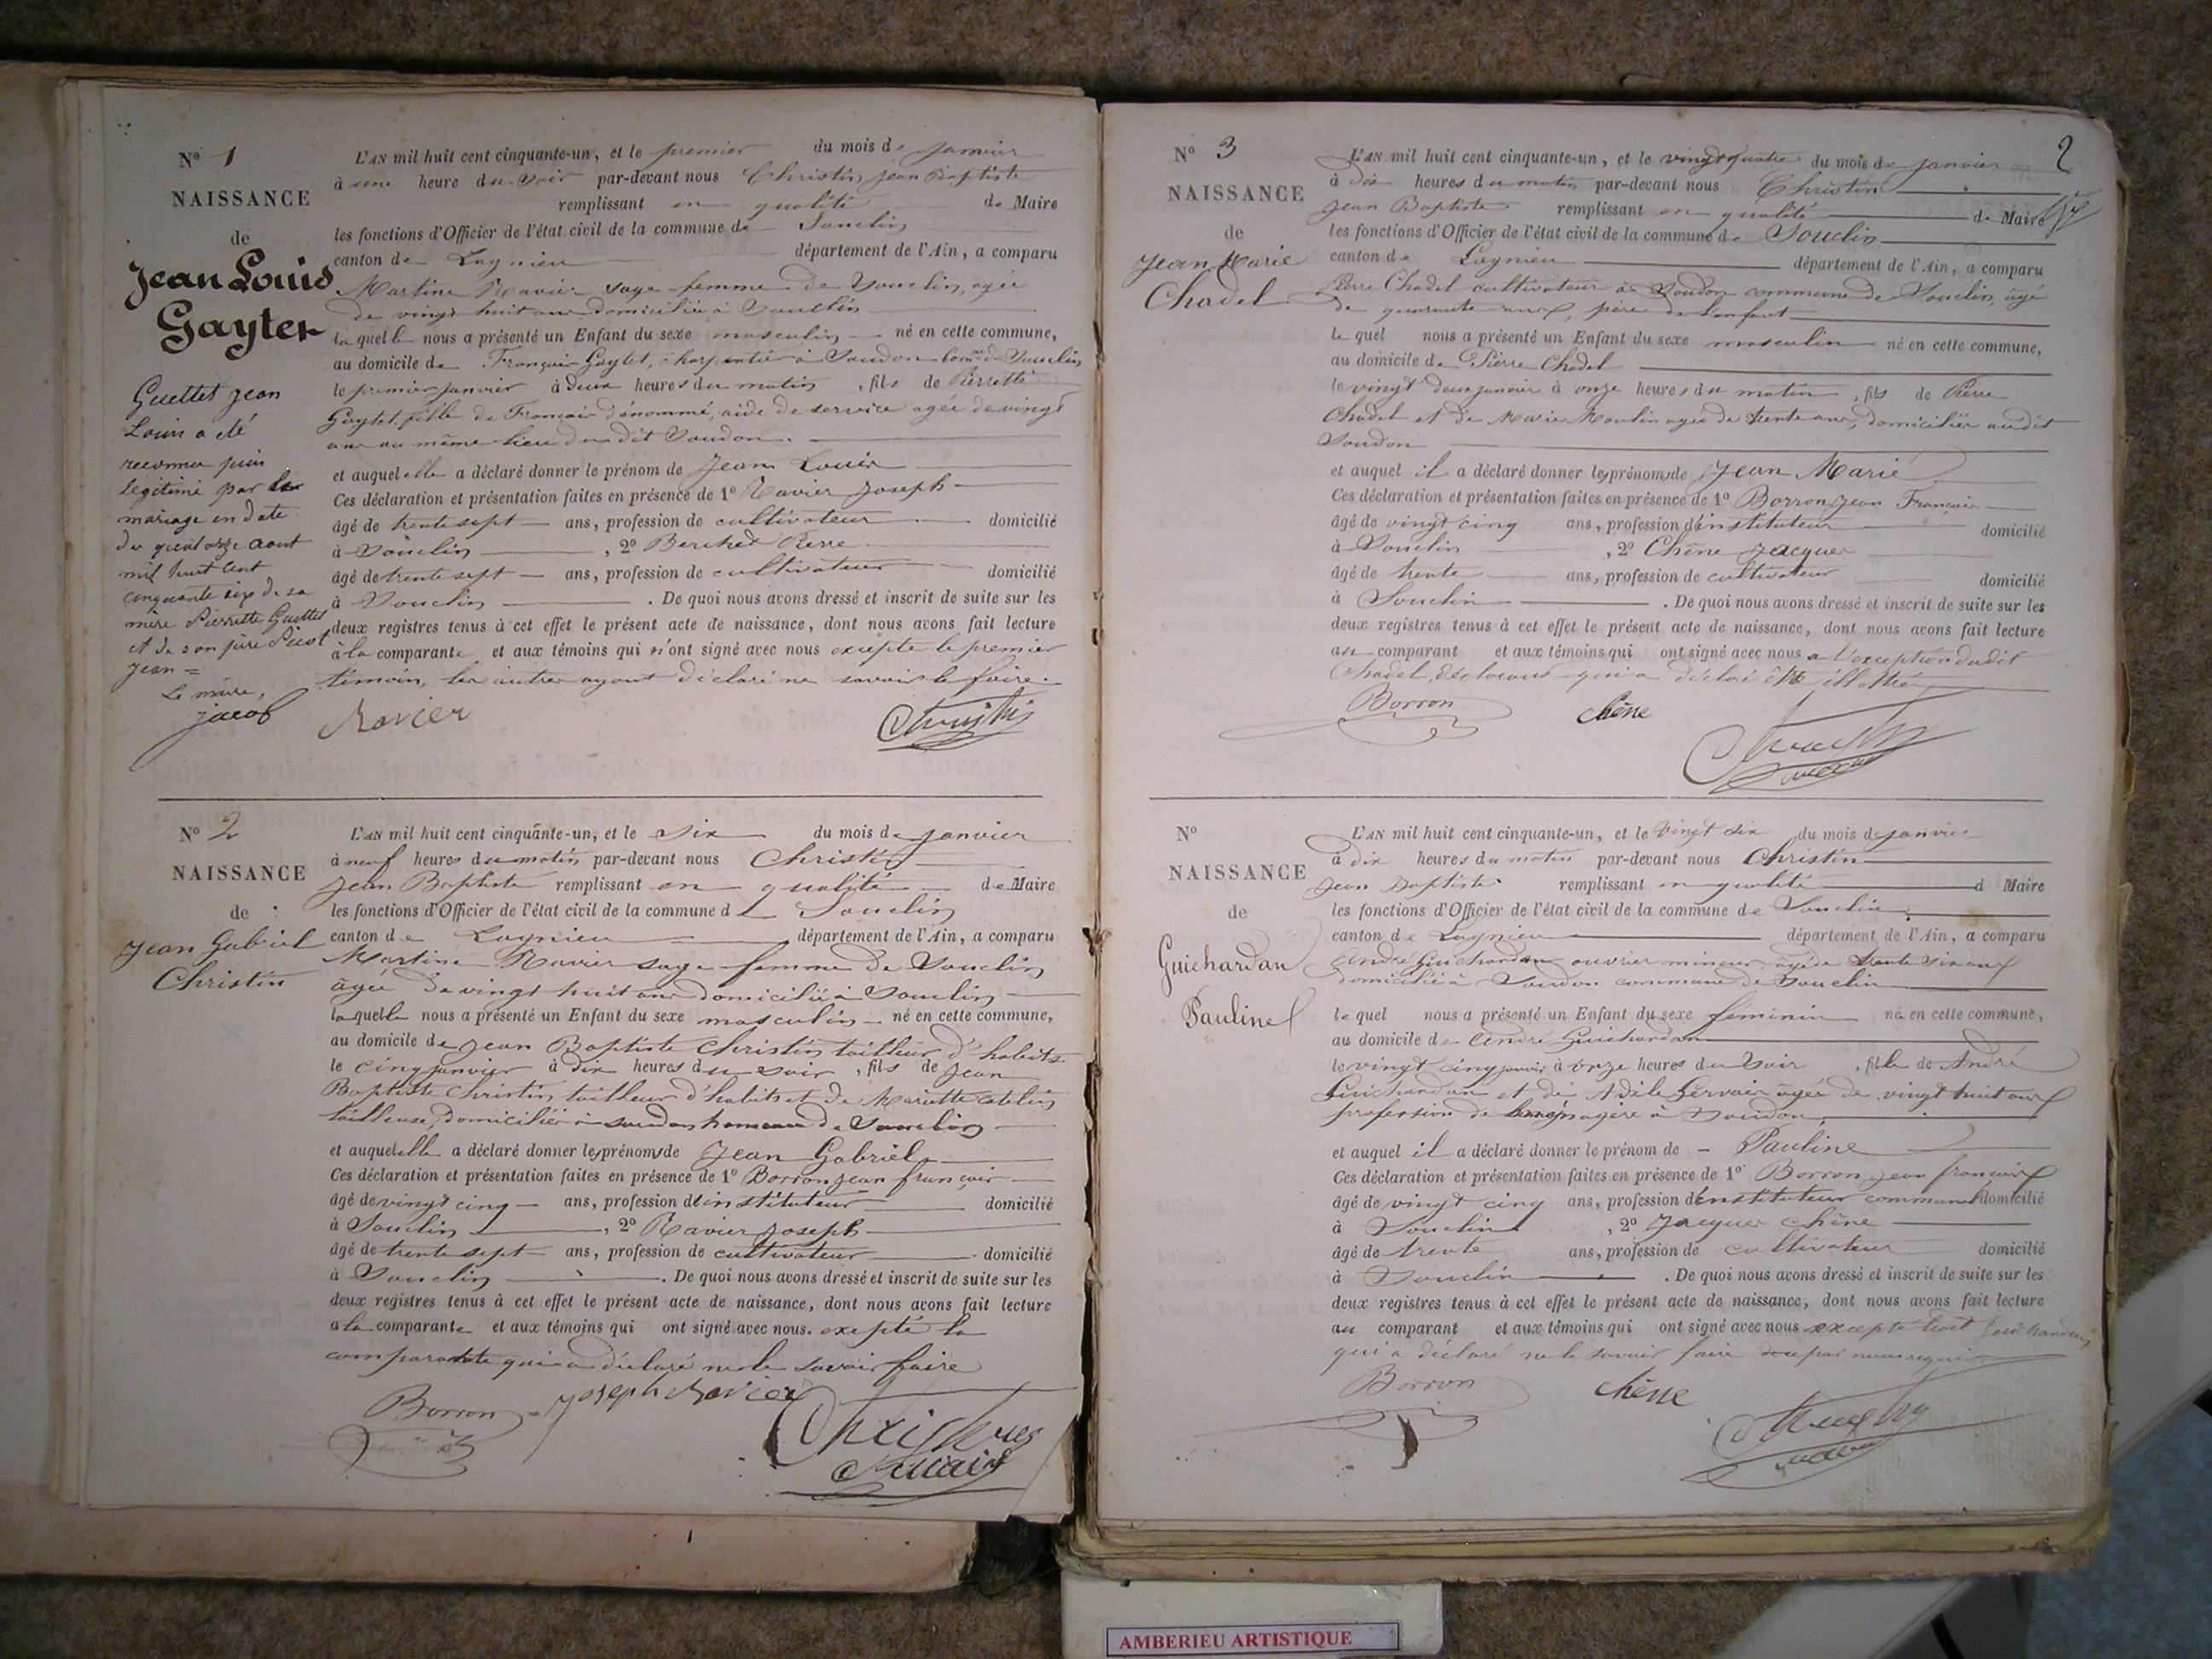 Nº 1
NAISSANCE
de
Jean Louis
Gayter
Guettet Jean
Louis a été
reconnu puis
légitimé par
mariage en date
du quatorze aout
mil huit cent
cinquante six de sa
mère Pierrette Guettet
et de son père Picot
Jean =
Le maire,
jacob
L'AN mil huit cent cinquante-un, et le premier du mois de janvier
à une heure du soir par-devant nous Christin jean Baptiste
remplissant en qualité de Maire
les fonctions d'Officier de l'état civil de la commune de Souclin
canton de Lagnieu département de l'Ain, a comparu
Martine Ravier sage femme de Souclin, agée
de vingt huit ans domiciliée à Souclin
laquelle nous a présenté un Enfant du sexe masculin né en cette commune,
au domicile de François Gaytet, charpentier à Soudon Comne de Souclin
le premier janvier à deux heures du matin, fils de Pierrette
Gaytet fille de François dénommé, aide de service agée de vingt
ans au même lieu du dit Soudon.
et auquel elle a déclaré donner le prénom de Jean Louis
Ces déclaration et présentation faites en présence de 1º Ravier Joseph
âgé de trente sept ans, profession de cultivateur domicilié
à Souclin, 2º Berchet Pierre
âgé de trente sept ans, profession de cultivateur domicilié
à Souclin. De quoi nous avons dressé et inscrit de suite sur les
deux registres tenus à cet effet le présent acte de naissance, dont nous avons fait lecture
à la comparante et aux témoins qui n'ont signé avec nous excepte le premier
témoin, les autres ayant déclaré ne savoir le faire.
Ravier Christin
Nº 2
NAISSANCE
de
Jean Gabriel
Christin
L'AN mil huit cent cinquante-un, et le six du mois de janvier
à neuf heures du matin par-devant nous Christin
Jean Baptiste remplissant en qualité de Maire
les fonctions d'Officier de l'état civil de la commune d Souclin
canton de Lagnieu département de l'Ain, a comparu
Martine Ravier sage femme de Souclin
âgée de vingt huit ans domiciliée à Souclin
laquelle nous a présenté un Enfant du sexe masculin né en cette commune,
au domicile de Jean Baptiste Christin tailleur d'habits
le cinq janvier à dix heures du soir, fils de Jean
Baptiste Christin tailleur d'habits et de Mariette
tailleuse, domiciliés à soudon hameau de Souclin
et auquel elle a déclaré donner les prénoms de Jean Gabriel
Ces déclaration et présentation faites en présence de 1º Borron jean françois
âgé de vingt cinq ans, profession d'instituteur domicilié
à Souclin, 2º Ravier Joseph
âgé de trente sept ans, profession de cultivateur domicilié
à Souclin. De quoi nous avons dressé et inscrit de suite sur les
deux registres tenus à cet effet le présent acte de naissance, dont nous avons fait lecture
a la comparante et aux témoins qui ont signé avec nous. excepté la
comparante qui a déclaré ne le savoir faire
Borron joseph Ravier Christin
Maire
2
Nº 3
NAISSANCE
de
Jean Marie
Chadel
L'AN mil huit cent cinquante-un, et le vingt quatre du mois de janvier
à dix heures du matin par-devant nous Christin
Jean Baptiste remplissant en qualité de Maire
les fonctions d'Officier de l'état civil de la commune de Souclin
canton de Lagnieu département de l'Ain, a comparu
Pierre Chadel cultivateur à Soudon commune de Souclin, âgé
de quarante ans, père de l'enfant
le quel nous a présenté un Enfant du sexe masculin né en cette commune,
au domicile de Pierre Chadel
le vingt deux janvier à onze heures du matin, fils de Pierre
Chadel et de Marie Moulin agée de trente ans, domiciliés audit
Soudon
et auquel il a déclaré donner les prénoms de Jean Marie
Ces déclaration et présentation faites en présence de 1º Borron Jean François
âgé de vingt cinq ans, profession d'instituteur domicilié
à Souclin, 2º Chêne Jacques
âgé de trente ans, profession de cultivateur domicilié
à Souclin. De quoi nous avons dressé et inscrit de suite sur les
deux registres tenus à cet effet le présent acte de naissance, dont nous avons fait lecture
au comparant et aux témoins qui ont signé avec nous a l'exception dudit
Chadel qui a déclaré être illettré
Borron chêne
Nº
NAISSANCE
de
Guichardan
Pauline
L'AN mil huit cent cinquante-un, et le vingt six du mois de janvier
à dix heures du matin par-devant nous Christin
Jean Baptiste remplissant en qualité d Maire
les fonctions d'Officier de l'état civil de la commune de Souclin
canton de Lagnieu département de l'Ain, a comparu
André Guichardan ouvrier mineur âgé de trente six ans
domicilié à Soudon commune de Souclin
le quel nous a présenté un Enfant du sexe féminin né en cette commune,
au domicile de André Guichardan
le vingt cinq janvier à onze heures du soir, fille de André
Guichardan et de Adèle Gervais âgée de vingt huit ans
profession de ménagère à Soudon
et auquel il a déclaré donner le prénom de - Pauline
Ces déclaration et présentation faites en présence de 1º Borron jean françois
âgé de vingt cinq ans, profession d'instituteur communal domicilié
à Souclin, 2º Jacques chêne
âgé de trente ans, profession de cultivateur domicilié
à Souclin. De quoi nous avons dressé et inscrit de suite sur les
deux registres tenus à cet effet le présent acte de naissance, dont nous avons fait lecture
au comparant et aux témoins qui ont signé avec nous excepté
qui a déclaré ne le savoir faire
Borron chêne
AMBERIEU ARTISTIQUE